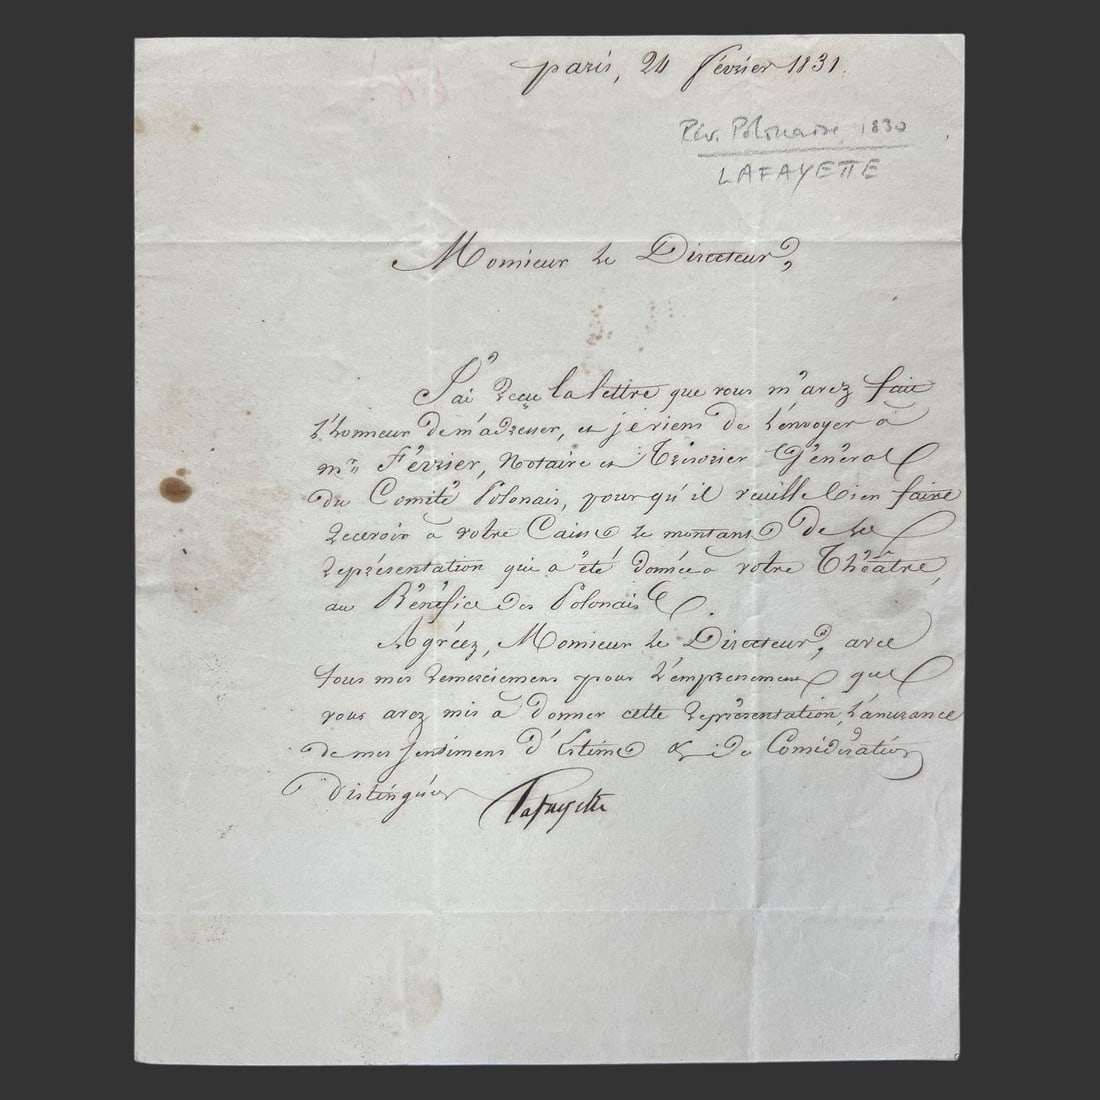 Paris, 24 février 1831.
Rév. Polonaise 1830
LAFAYETTE
Monsieur le Directeur,
J'ai reçu la lettre que vous m'avez fait
l'honneur de m'adresser, et je viens de l'envoyer à
Mr. Février, Notaire et Trésorier Général
du Comité Polonais, pour qu'il veuille bien faire
recevoir à votre Caisse le montant de la
représentation qui a été donnée à votre Théâtre,
au Bénéfice des Polonais.
Agréez, Monsieur le Directeur, avec
tous mes remerciemens pour l'empressement que
vous avez mis à donner cette représentation, l'assurance
de mes sentimens d'Estime & de Considération
distinguée
Lafayette